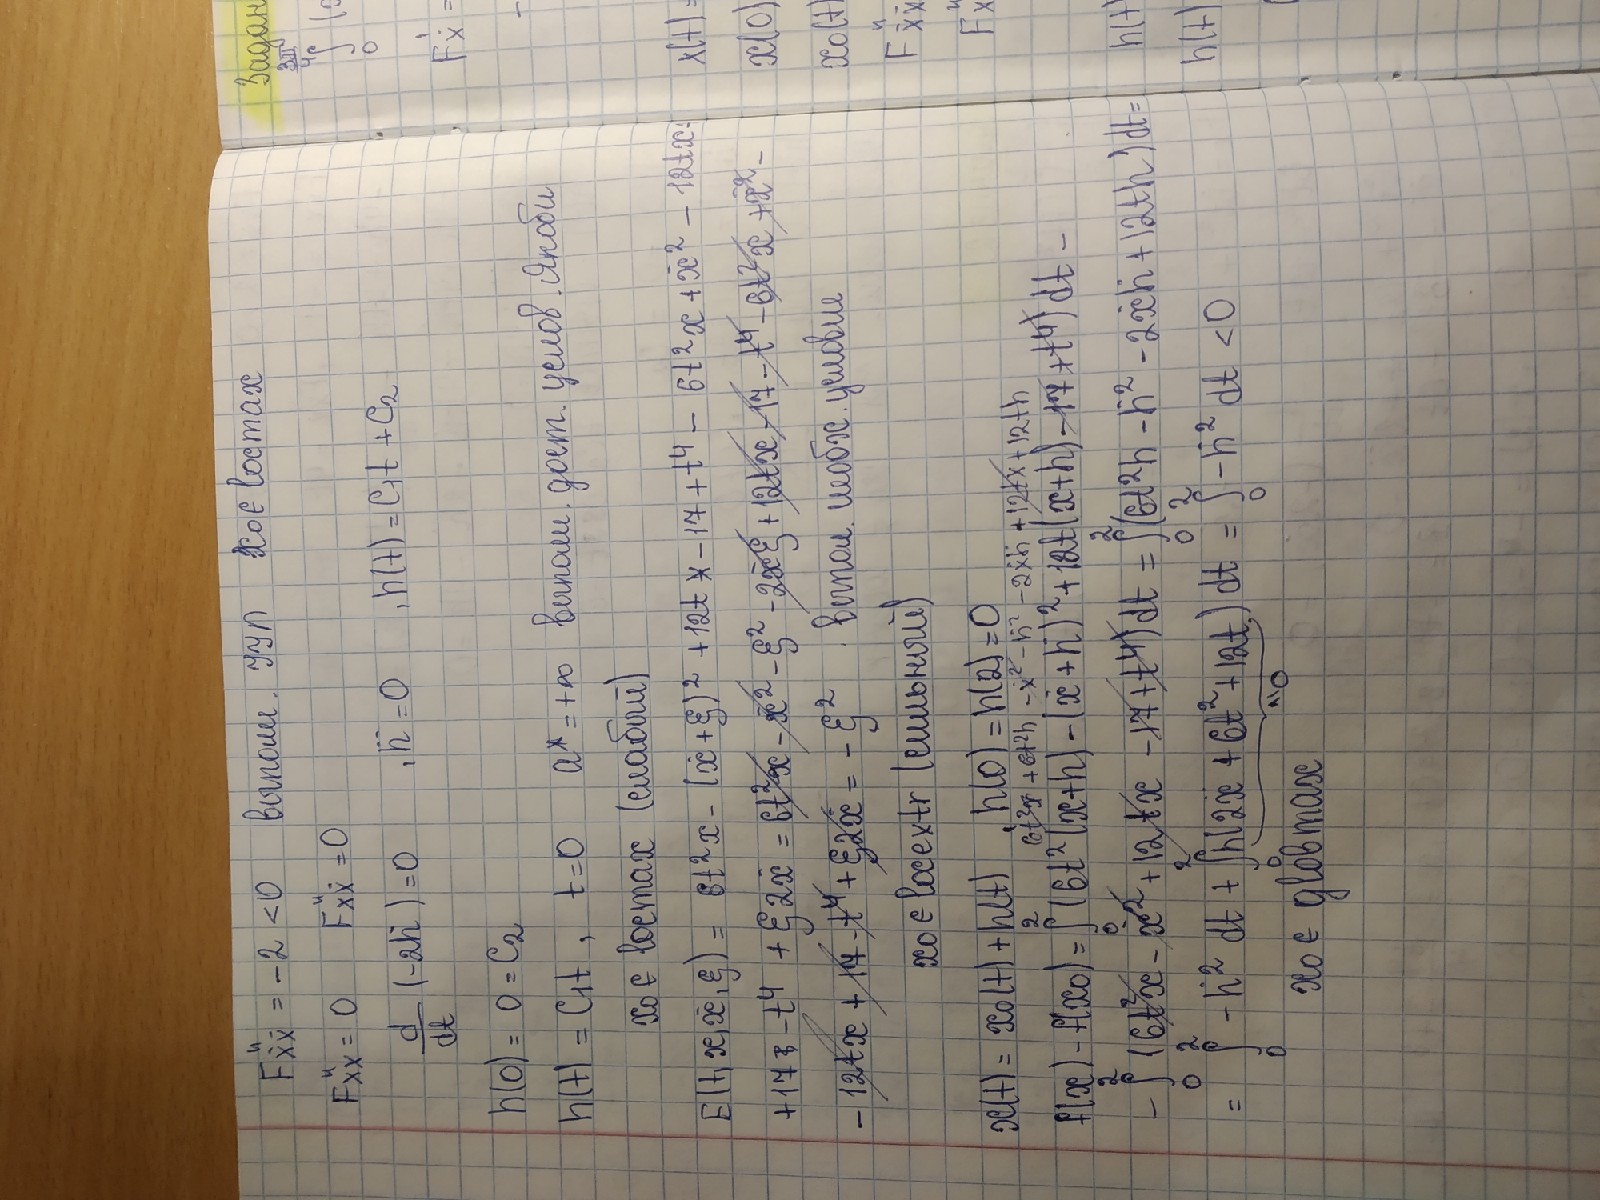 F''ẋẋ = -2 < 0 выполн. УУЛ x₀ ∈ locmax
F''xx = 0 F''xẋ = 0
d/dt (-2ḣ) = 0 , ḧ = 0 , h(t) = C₁t + C₂
h(0) = 0 = C₂
h(t) = C₁t , t = 0 a* = +∞ выполн. дост. услов. Якоби
x₀ ∈ locmax (слабый)
E(t, x, ẋ, ξ) = 6t²x - (ẋ + ξ)² + 12tx - 17 + t⁴ - 6t²x + ẋ² - 12tx +
+ 17 - t⁴ + ξ2ẋ = 6t²x - ẋ² - ξ² - 2ẋξ + 12tx - 17 - t⁴ - 6t²x + ẋ² -
- 12tx + 17 - t⁴ + ξ2ẋ = - ξ² выпол. необх. условие
x₀ ∈ locextr (сильный)
x(t) = x₀(t) + h(t) , h(0) = h(2) = 0
6t²x + 6t²h - ẋ² - ḣ² - 2ẋḣ + 12tx + 12th
f(x) - f(x₀) = ∫₀² (6t²(x+h) - (ẋ + ḣ)² + 12t(x+h) - 17 + t⁴) dt -
- ∫₀² (6t²x - ẋ² + 12tx - 17 + t⁴) dt = ∫₀² (6t²h - ḣ² - 2ẋḣ + 12th) dt =
= ∫₀² -ḣ² dt + ∫₀² h(2ẍ + 6t² + 12t) dt = ∫₀² -ḣ² dt < 0
0
x₀ ∈ globmax
Задан
3π/4
∫
0
F'ẋ =
x(t) =
x(0)
x₀(t)
F''ẋẋ
h(t)
h(t)